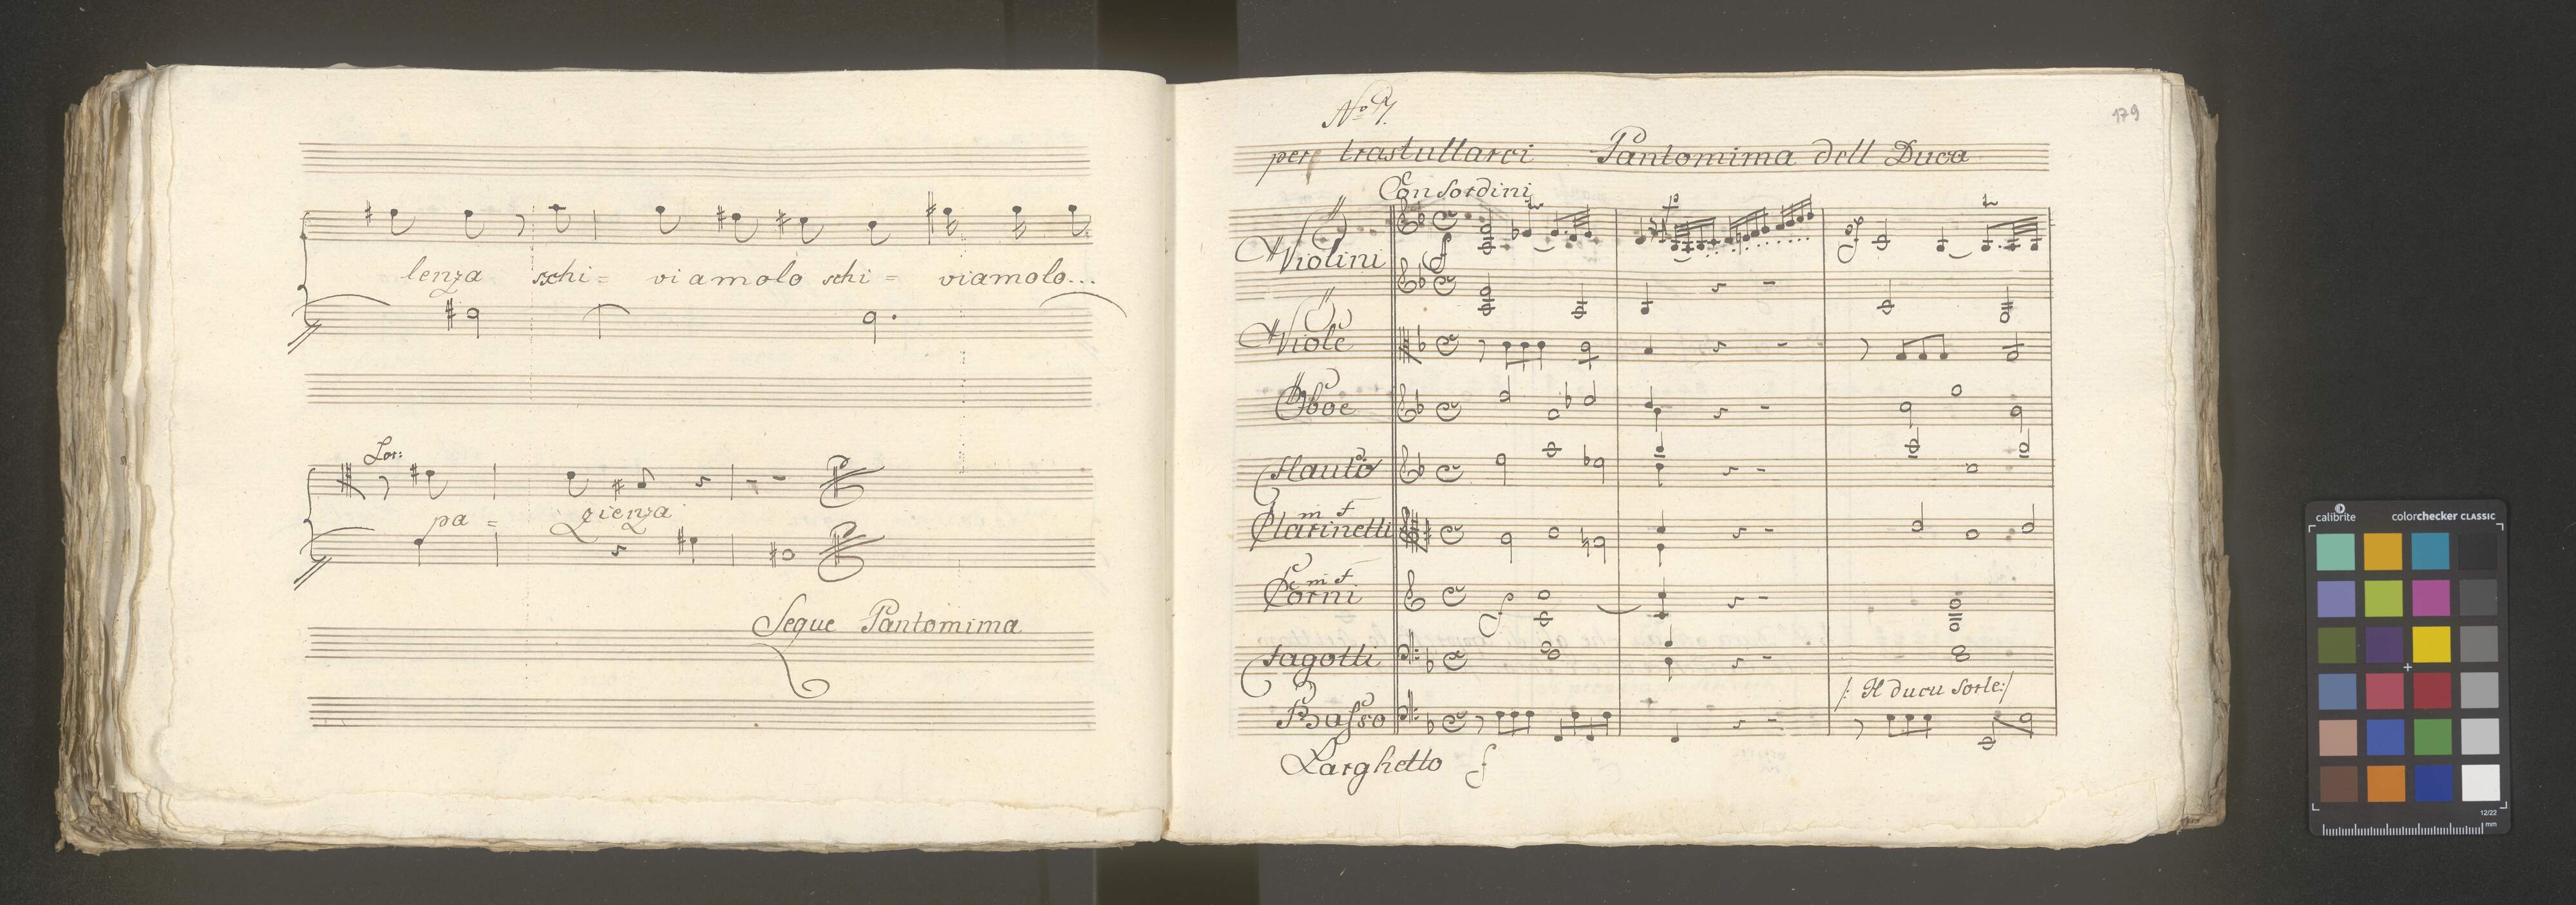 lenza schi = viamolo schi = viamolo...
Lor:
pa = zienza
Segue Pantomima
179
per trastullarci Pantomima dell Duca
Con Sordini
Violini
f
Viole
Oboe
Flauto
Clarinetti
m f
Corni
m f
Fagotti
/: Il ducu sorte:/
Basso
Larghetto f
calibrite colorchecker CLASSIC
12/22
mm